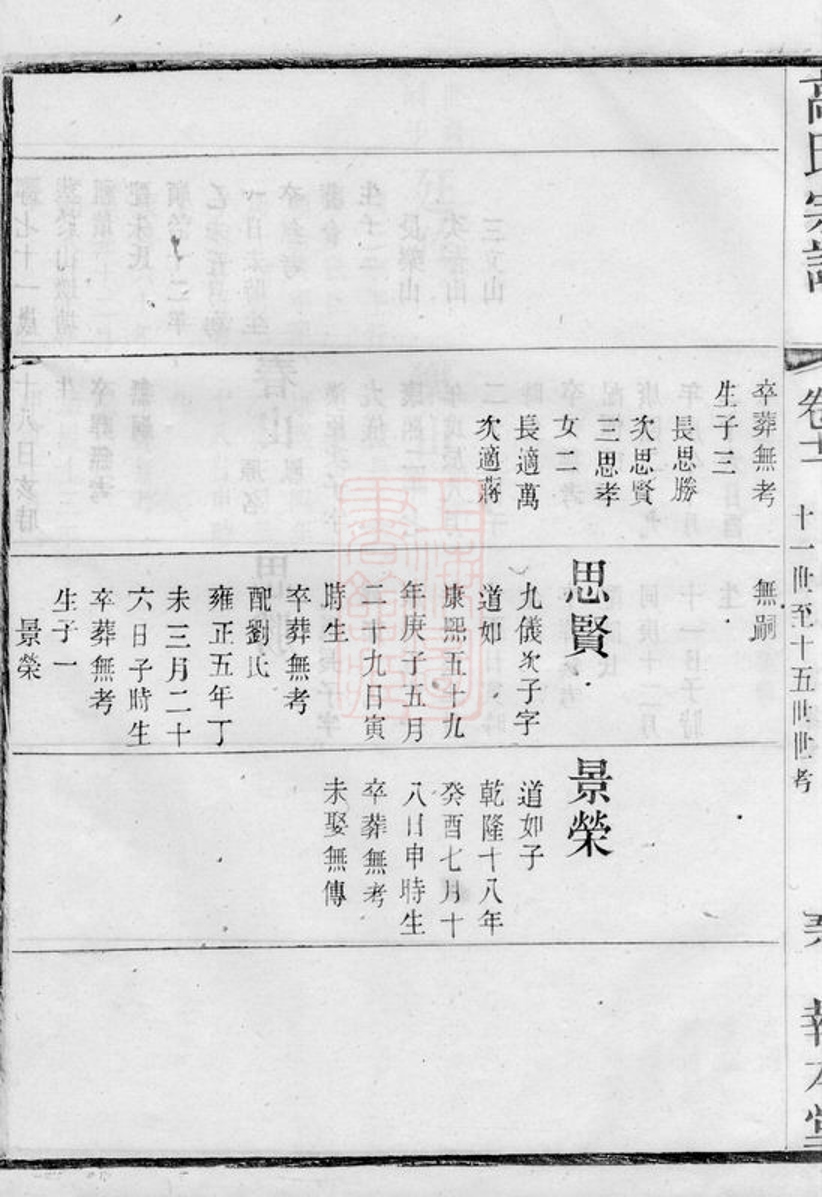 高氏宗譜
卷十二
十一世至十五世世考
報本堂
卒葬無考
生子三
長思勝
次思賢
三思孝
女二
長適萬
次適蔣
無嗣
思賢
九儀次子字
道如
康熙五十九
年庚子五月
二十九日寅
時生
卒葬無考
配劉氏
雍正五年丁
未三月二十
六日子時生
卒葬無考
生子一
景榮
景榮
道如子
乾隆十八年
癸酉七月十
八日申時生
卒葬無考
未娶無傳